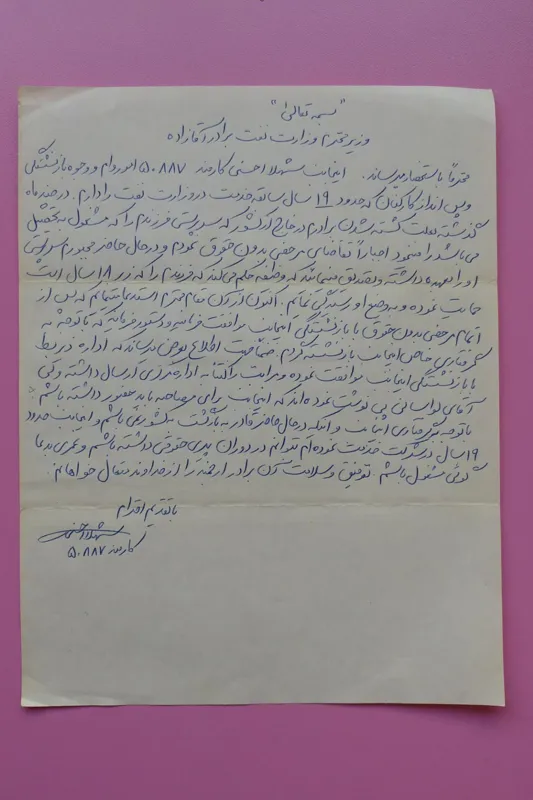 "بسمه تعالی"
وزیر محترم وزارت نفت برادر آقازاده
محترماً باستحضار میرساند. اینجانب شهلا احسنی کارمند ۵۰۸۸۷ امور وام و وجوه بازنشستگی
و پس انداز کارکنان که حدود ۱۹ سال سابقه خدمت در وزارت نفت را دارم. در چند ماه
گذشته بعلت کشته شدن برادرم در خارج از کشور که سرپرستی فرزندم را که مشغول به تحصیل
می باشد را مینمود اجباراً تقاضای مرخصی بدون حقوق نمودم و در حال حاضر مجبورم سرپرستی
او را بعهده داشته و تصدیق میفرمائید که وظیفه حکم می کند که فرزندم را که زیر ۱۸ سال است
حمایت نموده و به وضع او رسیدگی نمایم. اکنون از آن مقام محترم استدعا مینمایم که پس از
اتمام مرخصی بدون حقوق با بازنشستگی اینجانب موافقت فرمائید و دستور فرمائید که با توجه به
گرفتاری خاص اینجانب بازنشسته گردم. ضمناً جهت اطلاع بعرض میرساند که اداره ذیربط
با بازنشستگی اینجانب موافقت نموده و مراتب را کتباً به اداره مرکزی ارسال داشته ولی
آقای لواسانی پی نوشت نموده اند که اینجانب برای مصاحبه باید حضور داشته باشم
با توجه به گرفتاری اینجانب و اینکه در حال حاضر قادر به بازگشت به کشور نمی باشم و اینجانب حدود
۱۹ سال در شرکت خدمت نموده ام بتوانم در دوران پیری حقوقی داشته باشم و عمری بدعا
گوئی مشغول باشم. توفیق و سلامت آن برادر ارجمند را از خداوند متعال خواهانم.
با تقدیم احترام
شهلا احسنی
کارمند ۵۰۸۸۷